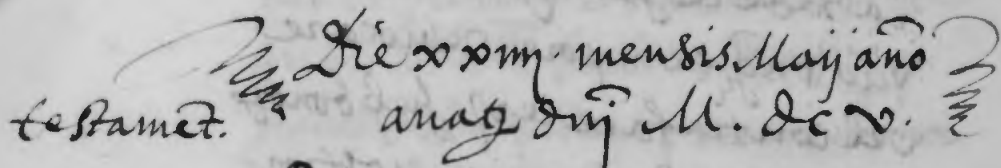 Die xxiiij. mensis Maij año
testamēt. a natꝫ dñj M. dc v.